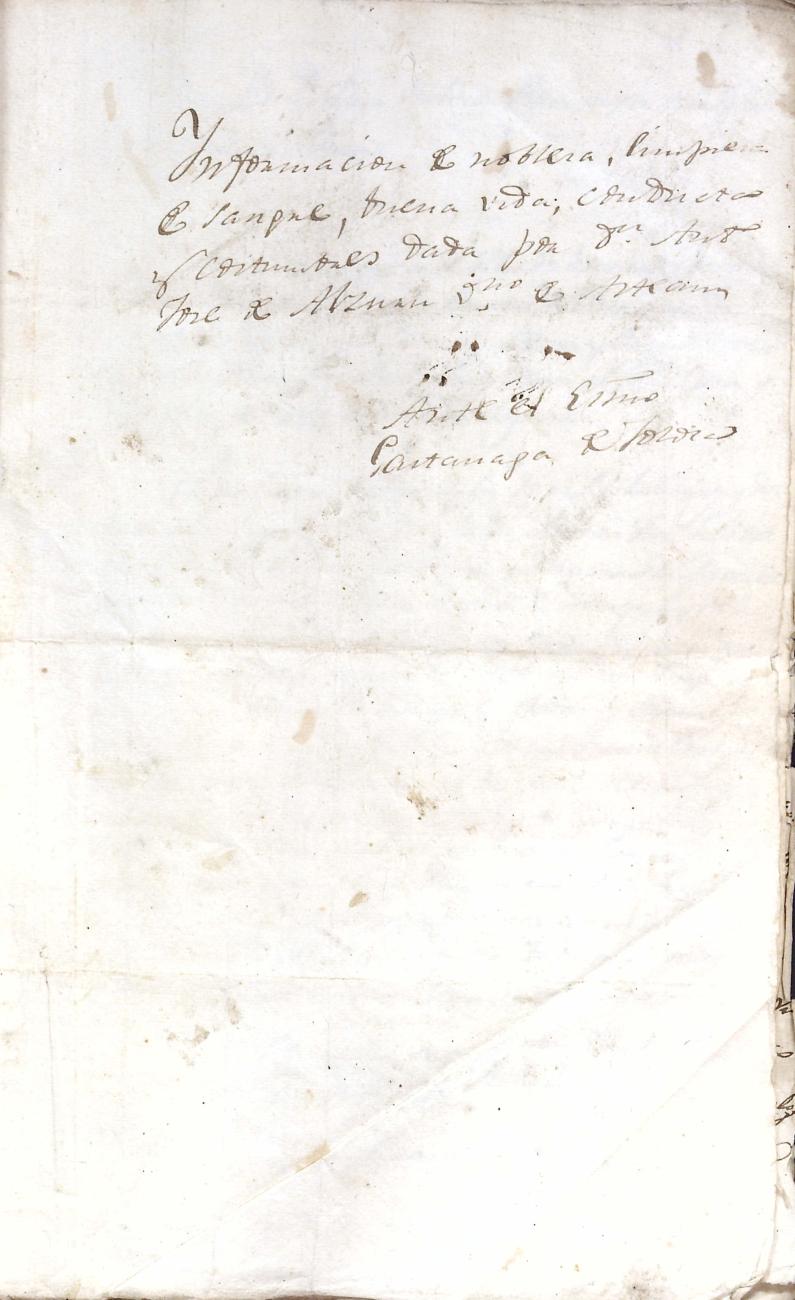 Ynformacion de noblesa, limpiesa
de sangre, buena vida, conducta
y costumbres dada por dn. Anto
Jose de Alzuru vno de Arteaun
Ante el Esno
Gastanaga de Soro